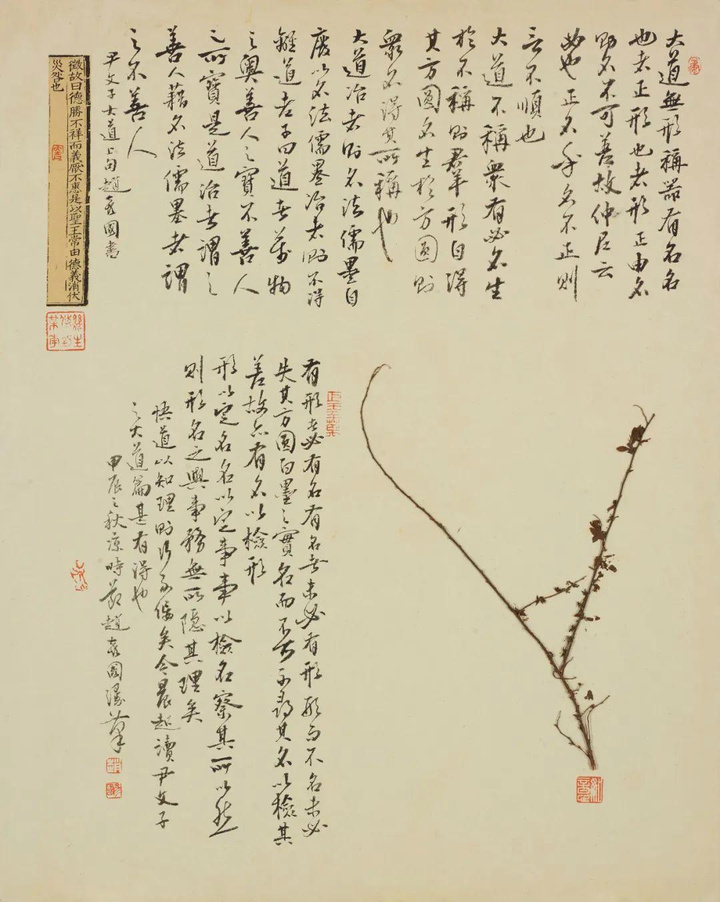 大道無形稱器有名名
也者正形也者形正由名
則名不可差故仲尼云
必也正名乎名不正則
言不順也
大道不稱衆有必名生
於不稱則羣形自得
其方圓名生於方圓則
衆名得其所稱也
大道治者則名法儒墨自
廢以名法儒墨治者則不得
離道老子曰道者萬物
之奧善人之寶不善人
之所寶是道治者謂之
善人藉名法儒墨者謂
之不善人
尹文子大道上句趙家國書
徵故曰德勝不祥而義厭不惠是以聖王常由德義消伏
災咎也
有形者必有名有名者未必有形形而不名未必
失其方圓白墨之實名而不可不尋其名以檢其
差故亦有名以檢形
形以定名名以定事事以檢名察其所以然
則形名之與事務無所隱其理矣
悟道以知理則行矣今晨起讀尹文子
之大道篇甚有得也
甲辰之秋涼時節趙家國漫筆